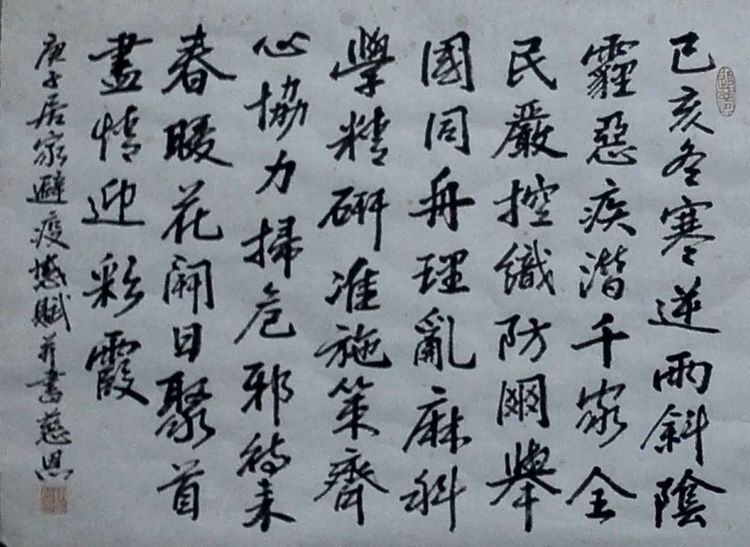 己亥冬寒逆雨斜陰
霾惡疾潛千家全
民嚴控織防網舉
國同舟理亂麻科
學精研准施策齊
心協力掃危邪待来
春暖花開日聚首
盡情迎彩霞
庚子居家避疫感賦并書慈恩